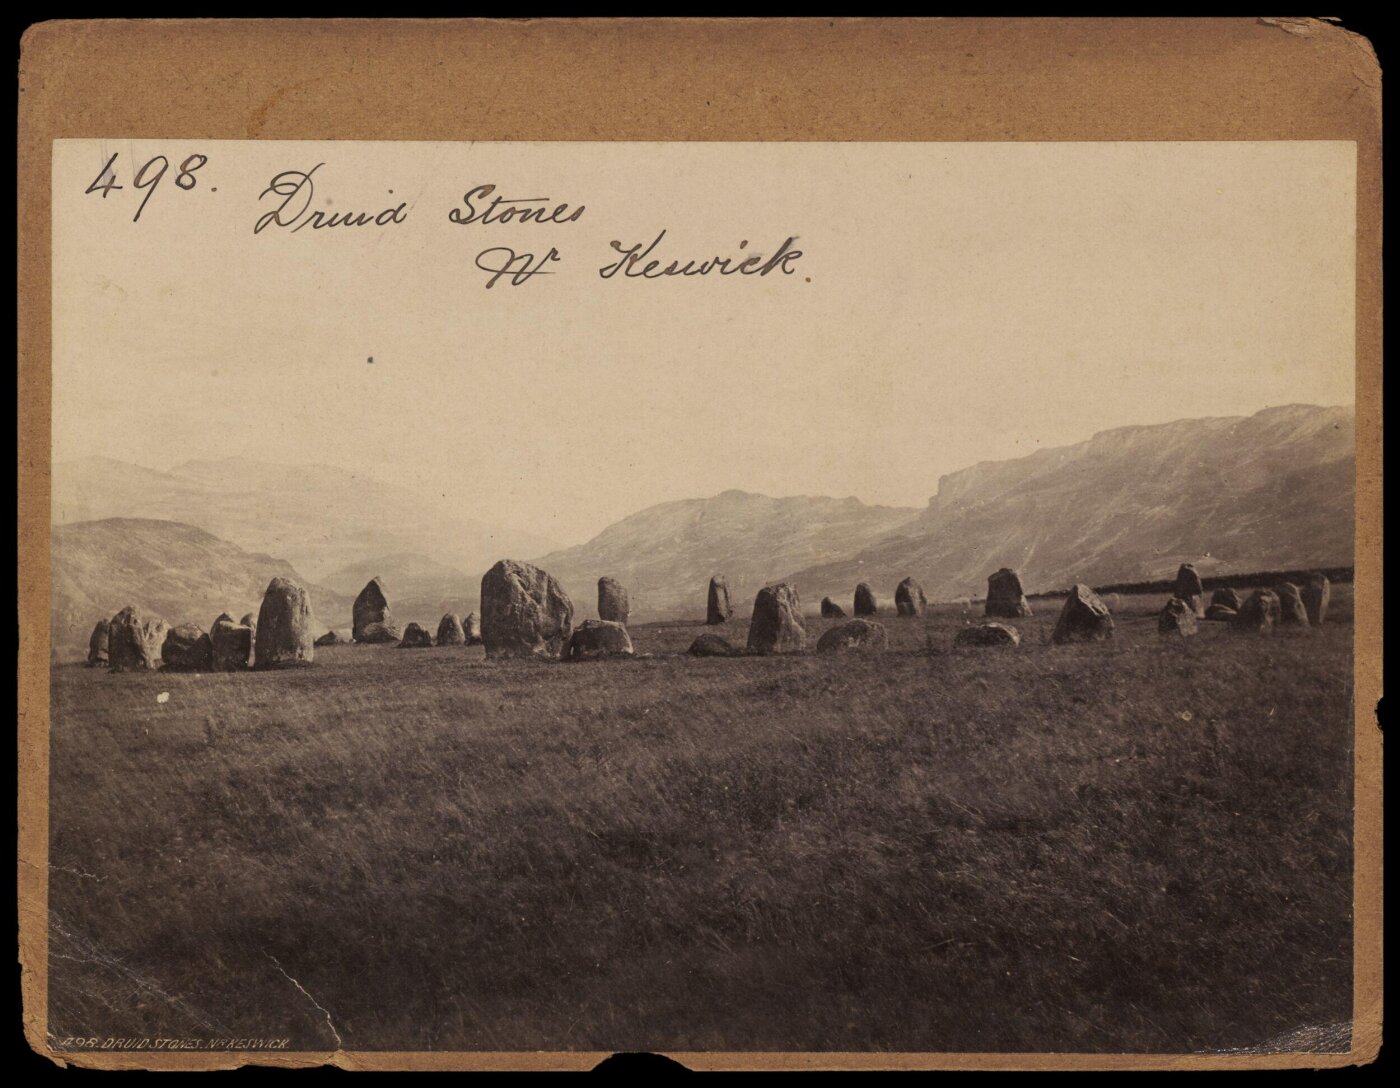 498.
Druid Stones
Nr Keswick.
498. DRUID STONES. NR KESWICK